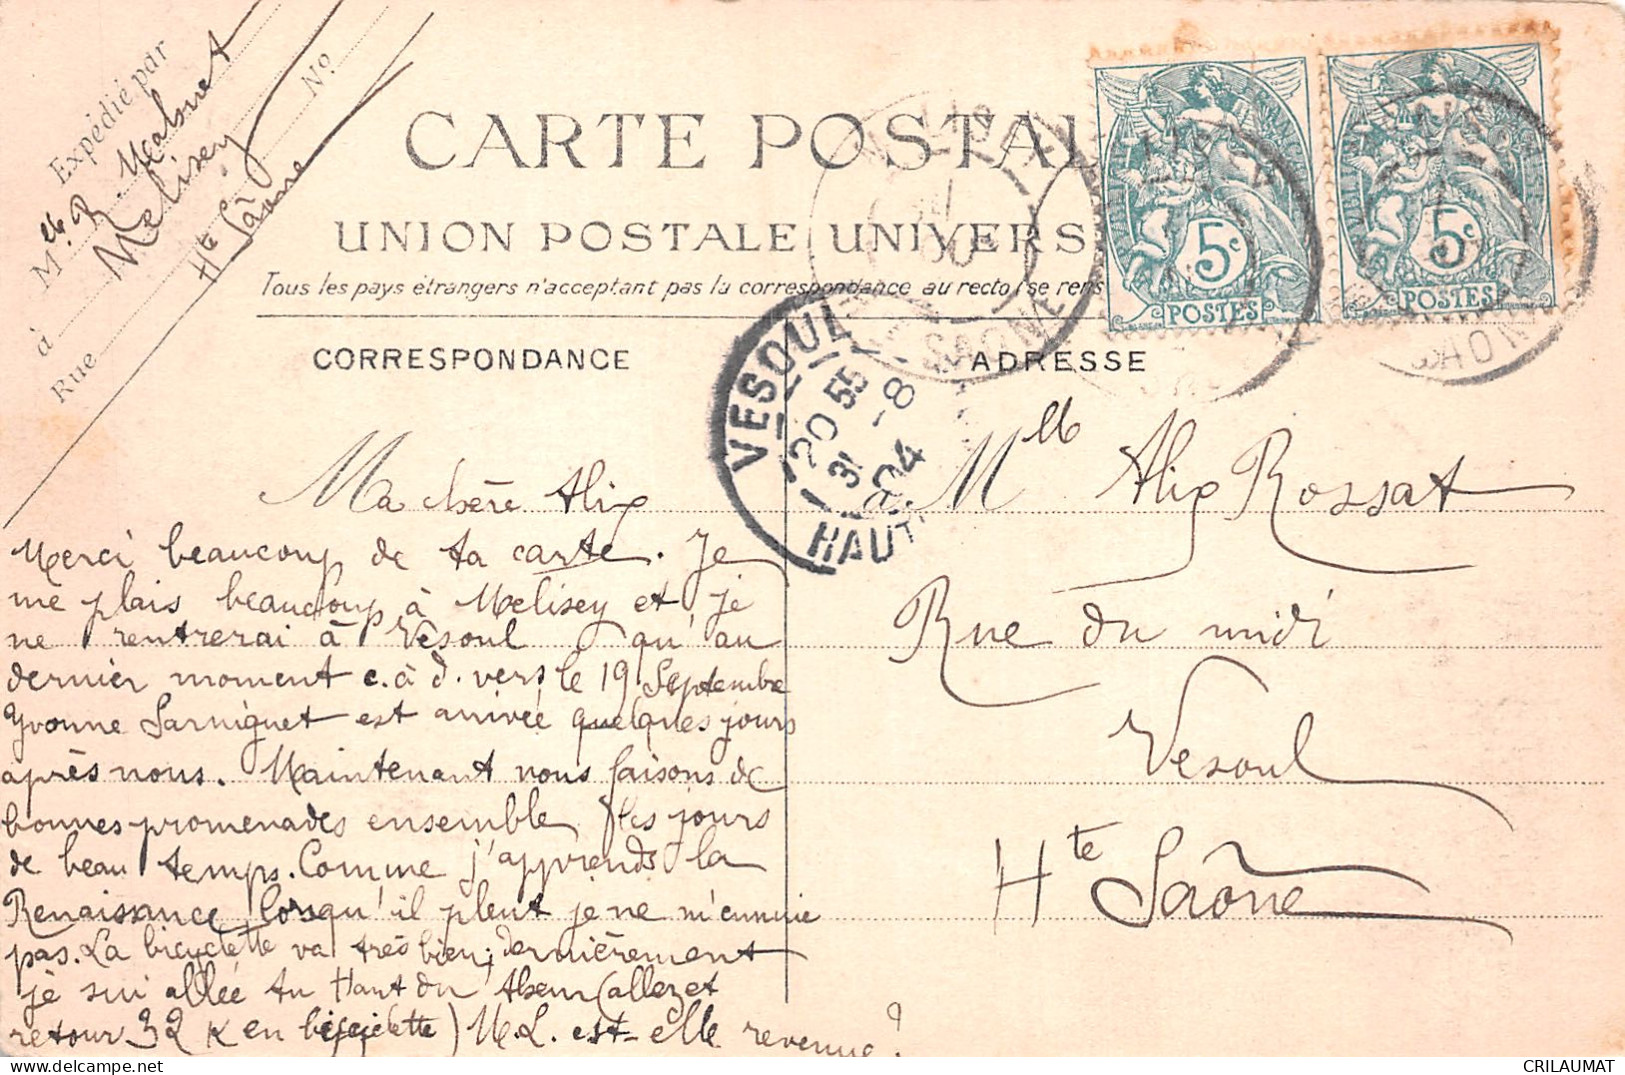 Expédié par
Mlle R. Malmet
à Melisey
Rue Nº
Hte Saône
CARTE POSTAL
UNION POSTALE UNIVERS
Tous les pays étrangers n'acceptent pas la correspondance au recto (se rens
CORRESPONDANCE
ADRESSE
5c
POSTES
5c
POSTES
VESOUL
20 55
31 -8
04
HAUT
SAONE
Ma chère Alix
Merci beaucoup de ta carte. Je
me plais beaucoup à Melisey et je
ne rentrerai à Vesoul qu'au
dernier moment c.à d. vers le 19 Septembre
Yvonne Sarniguet est arrivée quelques jours
après nous. Maintenant nous faisons de
bonnes promenades ensemble les jours
de beau temps. Comme j'apprends la
Renaissance lorsqu'il pleut je ne m'ennuie
pas. La bicyclette va très bien; dernièrement
je sui allée au Haut du Them (allez et
retour 32 K en bicyclette) M.L. est-elle revenue?
Mlle Alix Rossat
Rue du midi
Vesoul
Hte Saône
CRILAUMAT